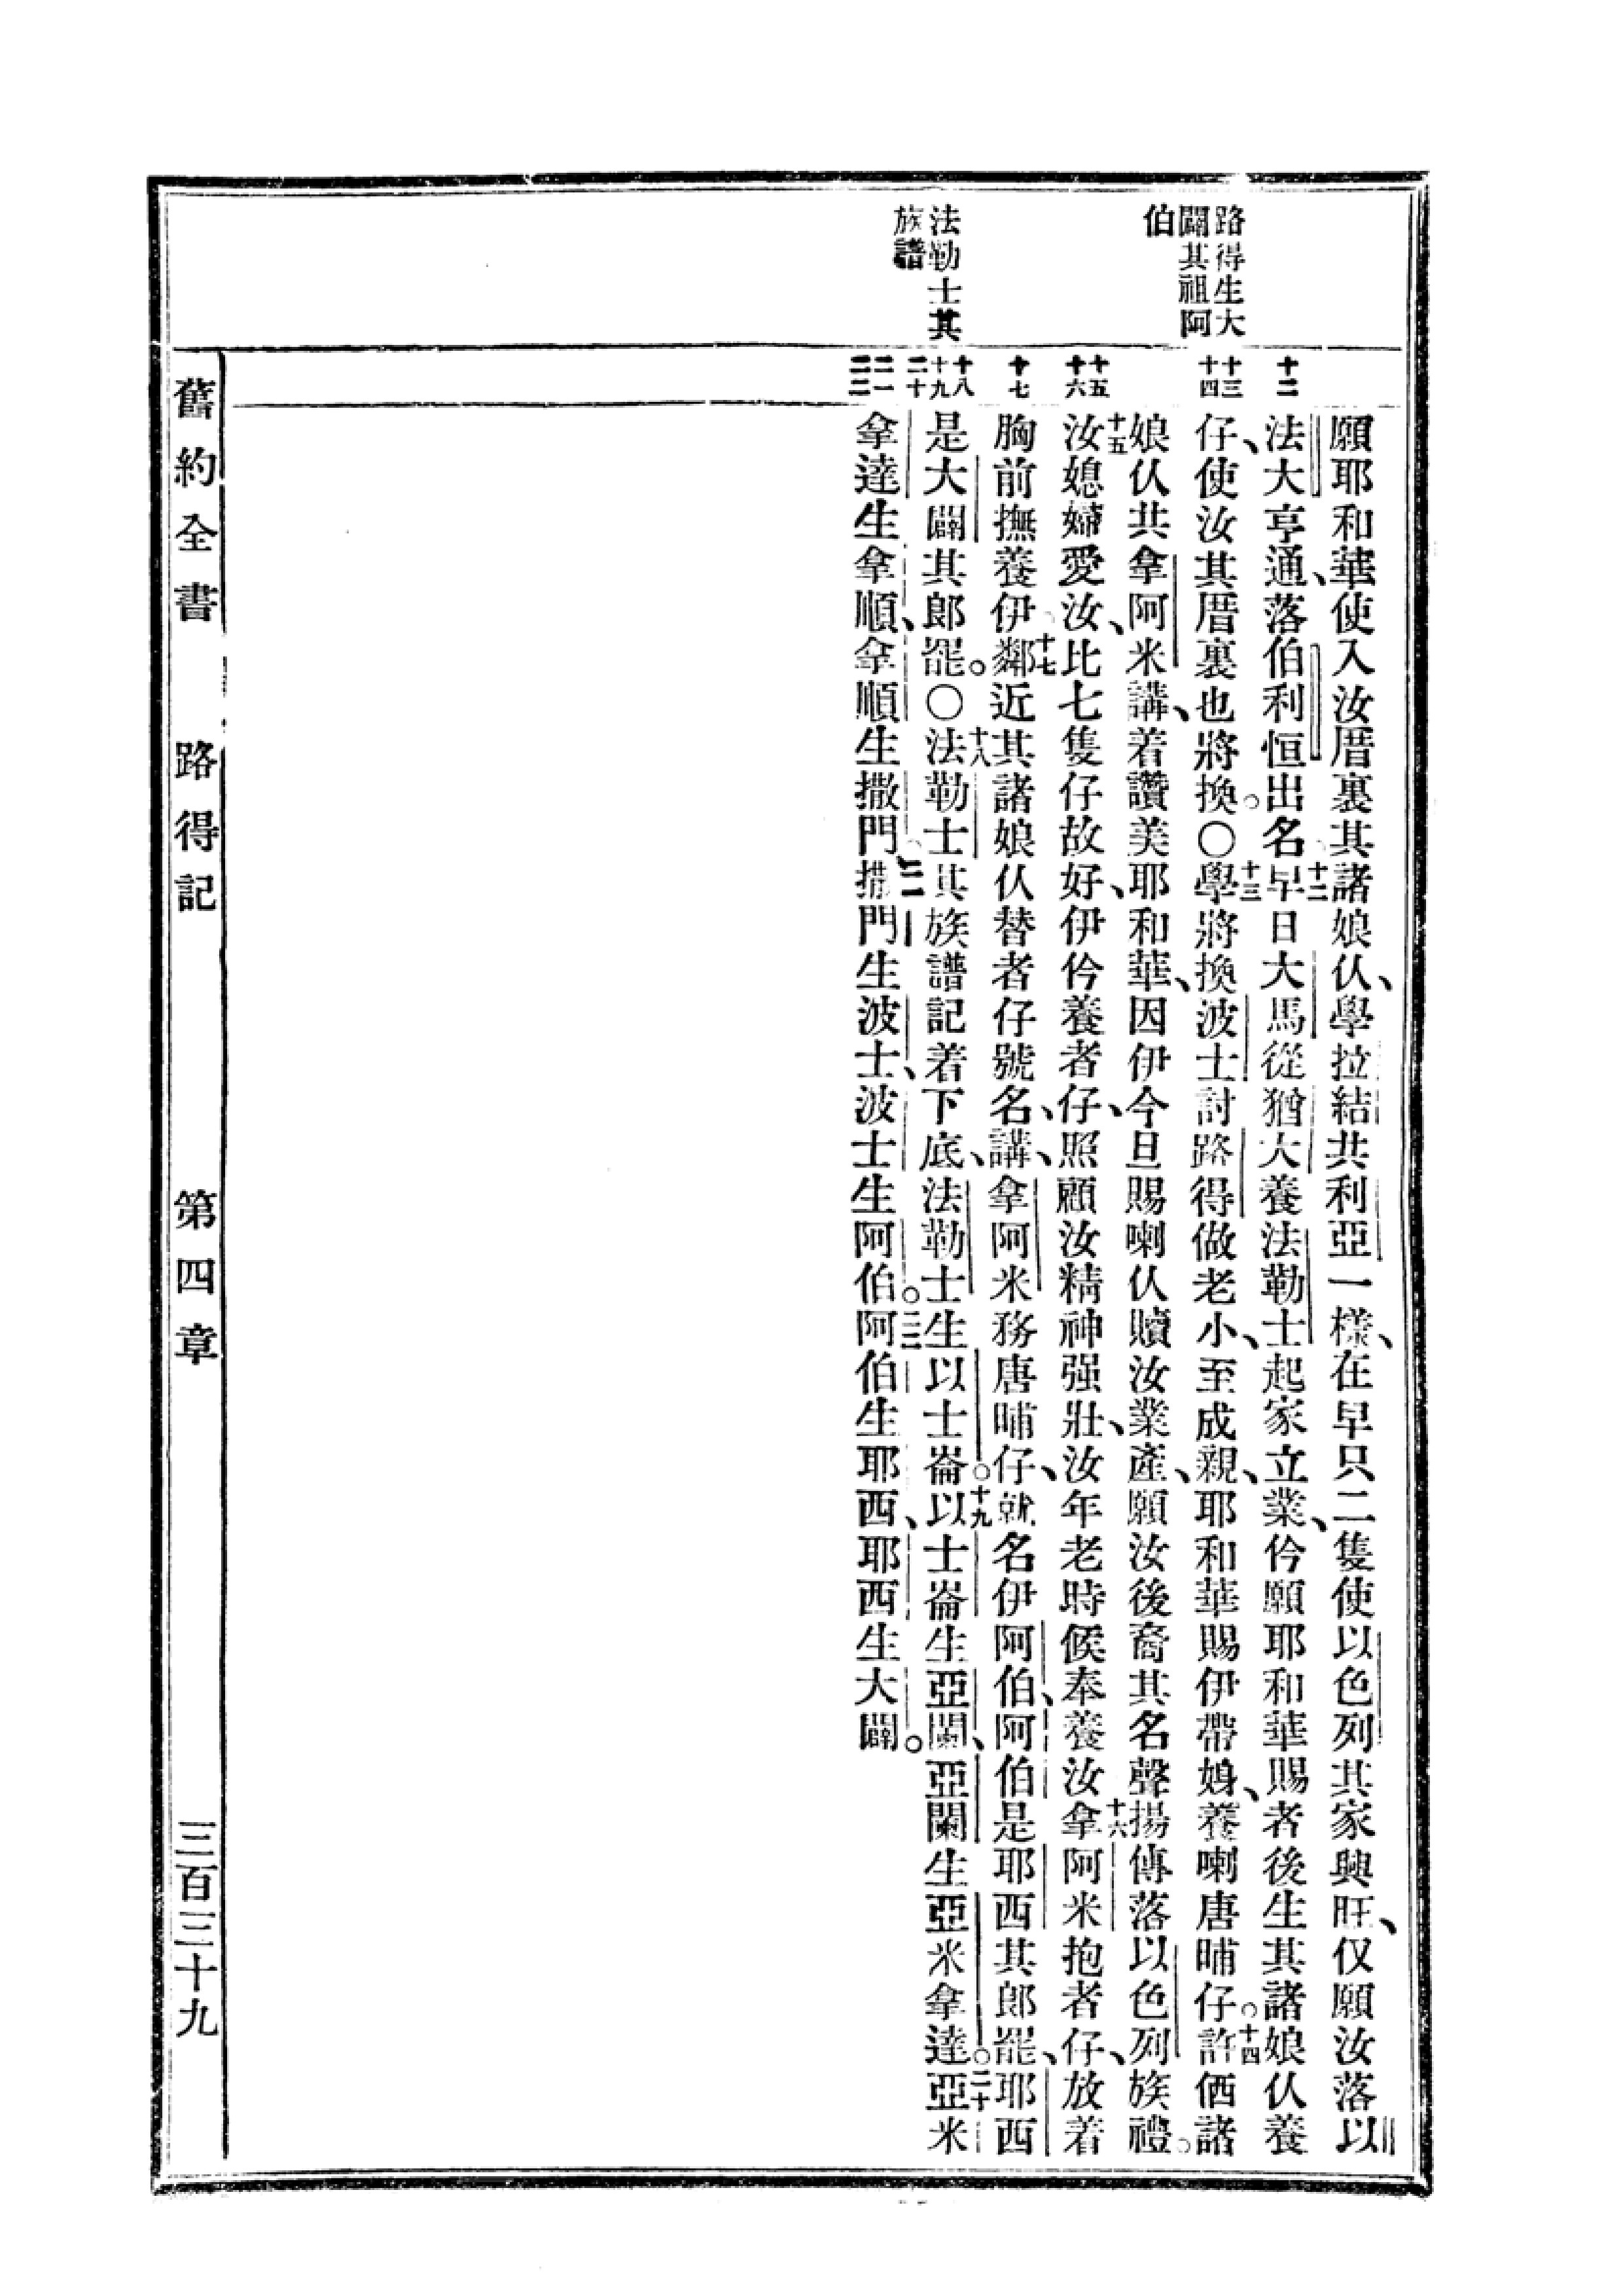 路得生大
闢其祖阿
伯
法勒士其
族譜
十二
十三
十四
十五
十六
十七
十八
十九
二十
二一
二二
願耶和華使入汝厝裏其諸娘仈、學拉結共利亞一樣、在早只二隻使以色列其家興旺、仅願汝落以
法大亨通、落伯利恒出名。十二早日大馬從猶大養法勒士起家立業、仱願耶和華賜者後生其諸娘仈養
仔、使汝其厝裏也將換。〇十三學將換波士討路得做老小、至成親、耶和華賜伊帶㛛、養喇唐晡仔。十四許㑚諸
娘仈共拿阿米講、着讚美耶和華、因伊今旦賜喇仈贖汝業產、願汝後裔其名聲揚傳落以色列族禮。
十五汝媳婦愛汝、比七隻仔故好、伊仱養者仔、照顧汝精神强壯、汝年老時候奉養汝十六拿阿米抱者仔、放着
胸前撫養伊。十七鄰近其諸娘仈替者仔號名、講、拿阿米務唐晡仔、就名伊阿伯、阿伯是耶西其郎罷、耶西
是大闢其郎罷。〇十八法勒士其族譜記着下底、法勒士生以士崙。十九以士崙生亞闌、亞闌生亞米拿達。二十亞米
拿達生拿順、拿順生撒門。二一撒門生波士、波士生阿伯。二二阿伯生耶西、耶西生大闢。
舊約全書　路得記　第四章　三百三十九